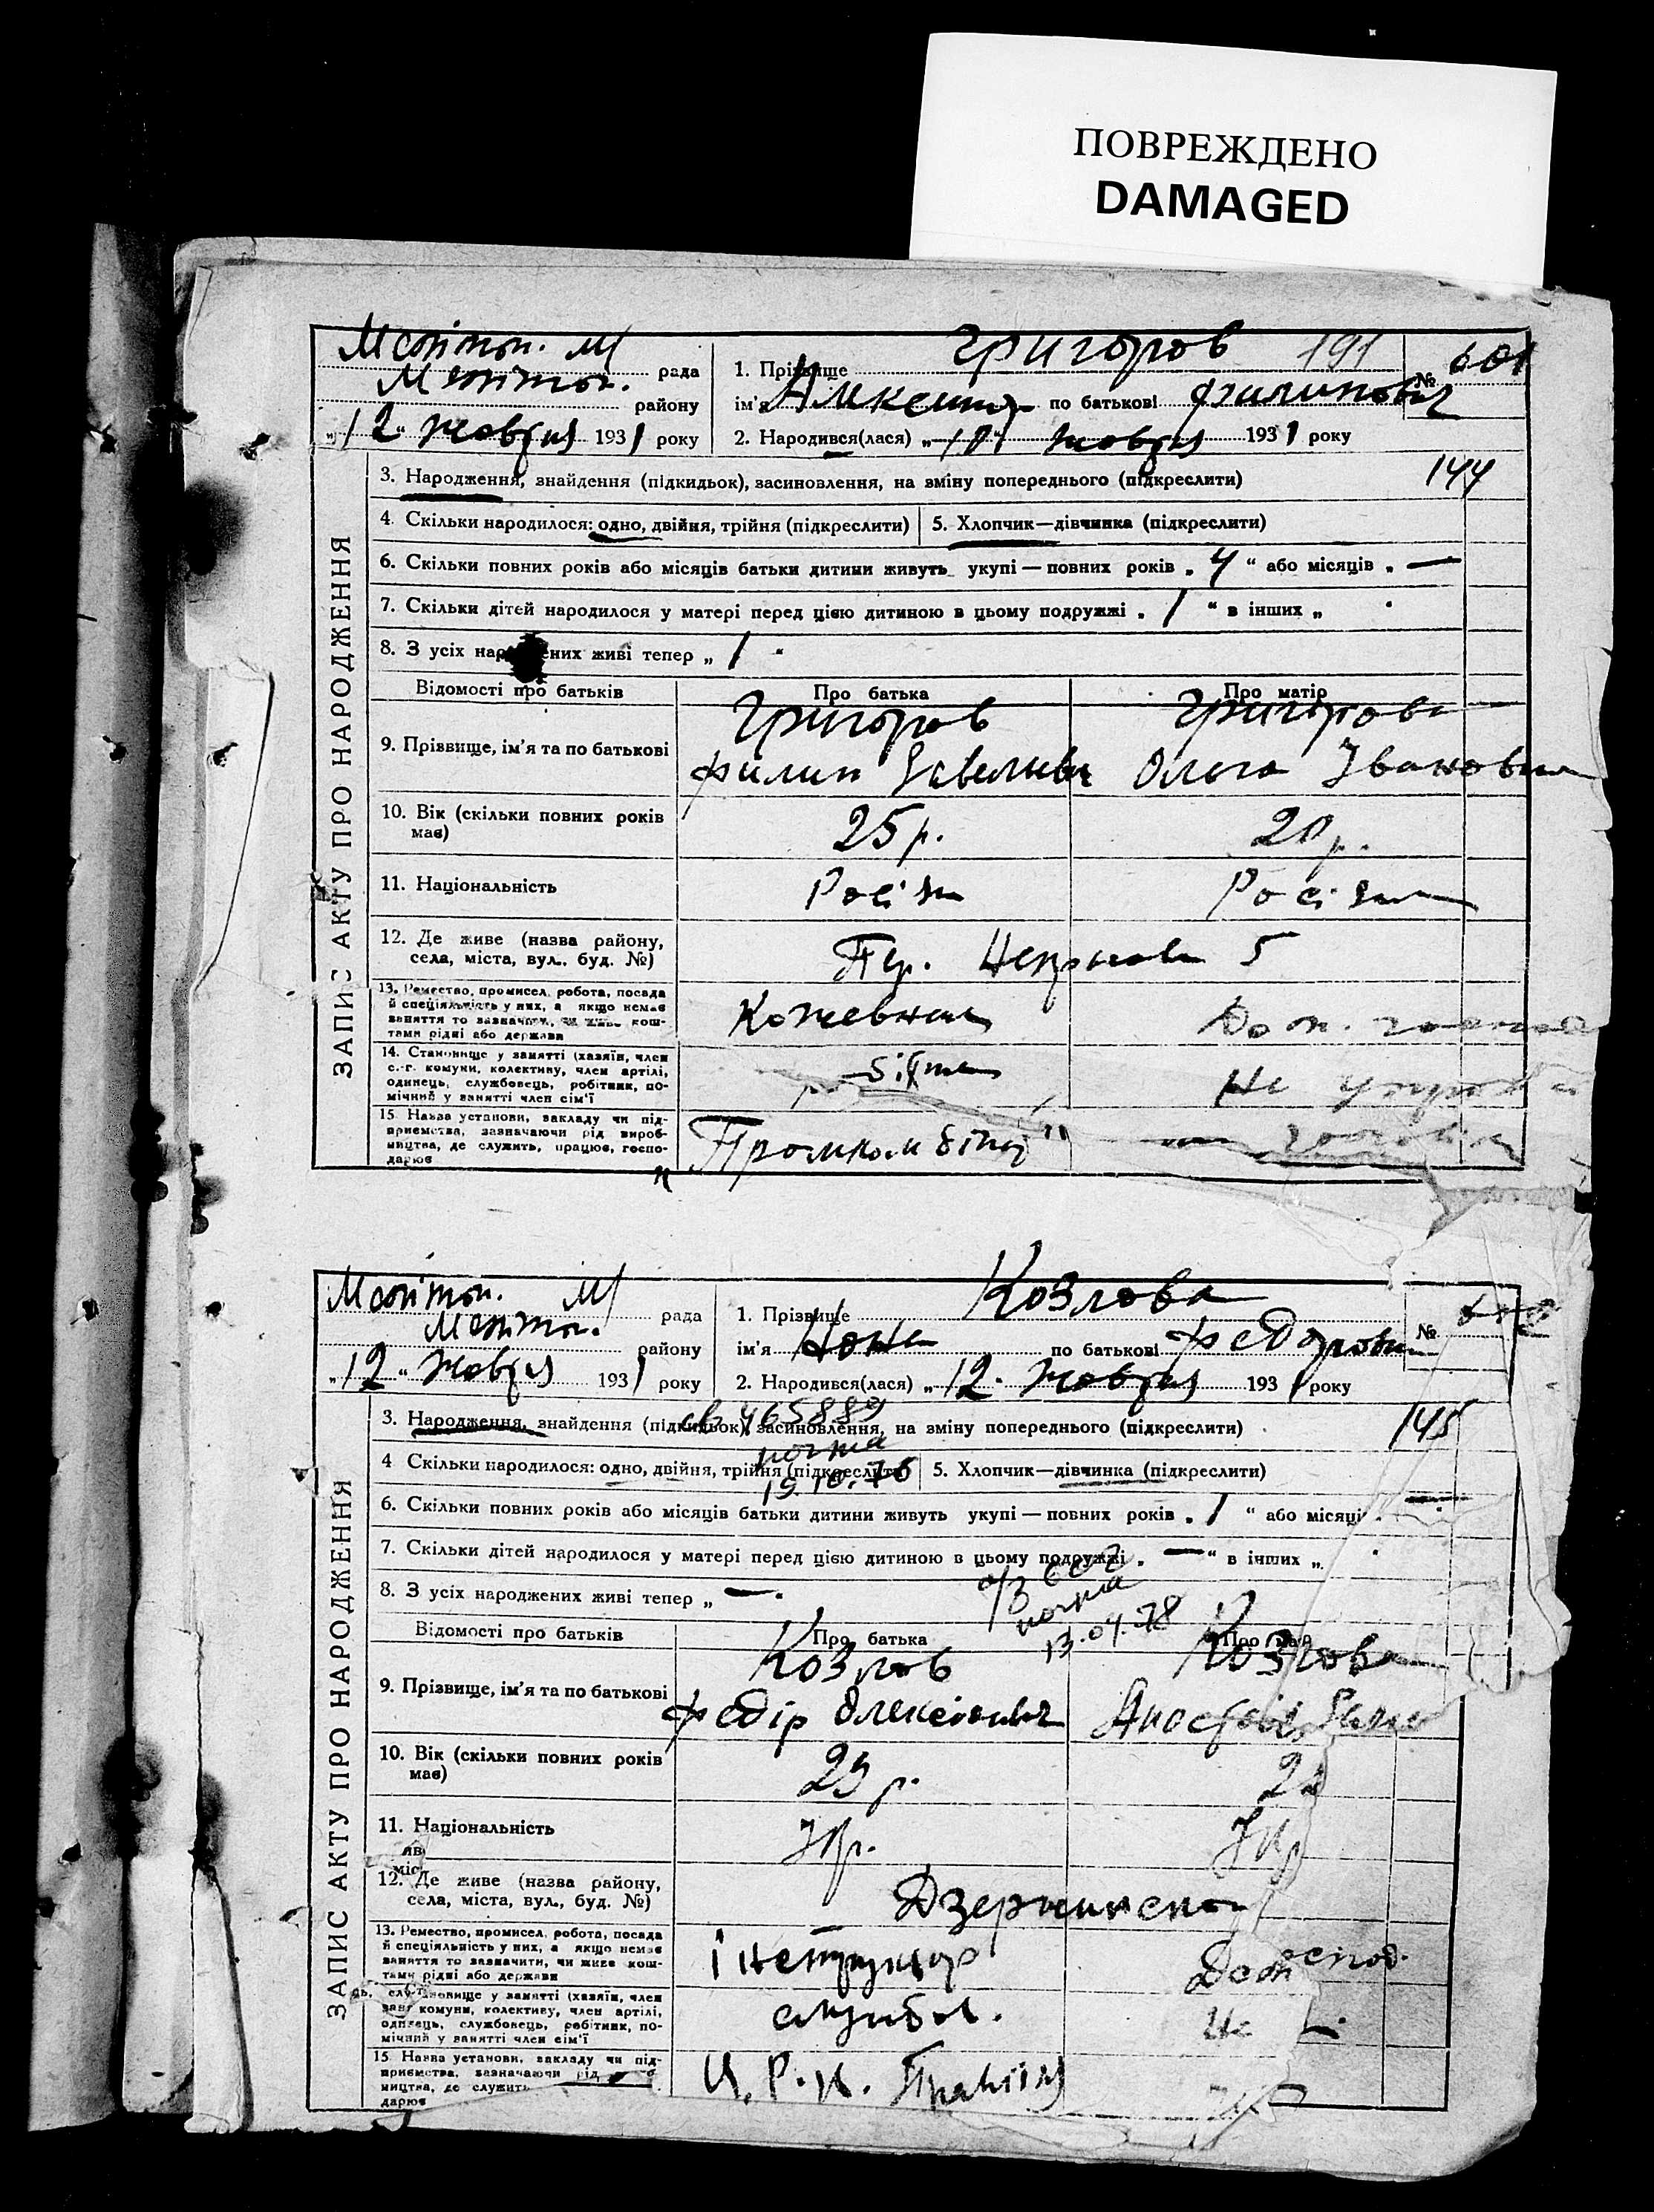 ПОВРЕЖДЕНО
DAMAGED
рада
району
„12“ жовтня 1931 року
1. Прізвище Григоров 191
ім'я по батькові Филипович
№ 601
2. Народився(лася) „10“ жовтня 1931 року
ЗАПИС АКТУ ПРО НАРОДЖЕННЯ
3. Народження, знайдення (підкидьок), засиновлення, на зміну попереднього (підкреслити) 144
4. Скільки народилося: одно, двійня, трійня (підкреслити) 5. Хлопчик—дівчинка (підкреслити)
6. Скільки повних років або місяців батьки дитини живуть укупі — повних років „4“ або місяців „—
7. Скільки дітей народилося у матері перед цією дитиною в цьому подружжі „1“ в інших „
8. З усіх народжених живі тепер „1“
Відомості про батьків Про батька Про матір
9. Прізвище, ім'я та по батькові Григоров Григорова
Филип Ольга Івановна
10. Вік (скільки повних років має) 25 р. 20 р.
11. Національність Росіян Росіян
12. Де живе (назва району, села, міста, вул., буд. №) Пер. 5
13. Ремество, промисел, робота, посада й спеціяльність у них, а якщо немає заняття то зазначити, чи живе коштами рідні або держави Кожевник Дом.
14. Становище у занятті (хазяїн, член с.-г. комуни, колективу, член артілі, одинець, службовець, робітник, помічний у занятті член сім'ї Не
15. Назва установи, закладу чи підприємства, зазначаючи рід виробництва, де служить, працює, господарює „Промкомбінат“
рада
району
„12“ жовтня 1931 року
1. Прізвище Козлова
ім'я Нона по батькові Федоровна
№
2. Народився(лася) „12“ жовтня 1931 року
ЗАПИС АКТУ ПРО НАРОДЖЕННЯ
3. Народження, знайдення (підкидьок), засиновлення, на зміну попереднього (підкреслити) 145
св 465889
почта
19.10.76
4 Скільки народилося: одно, двійня, трійня (підкреслити) 5. Хлопчик—дівчинка (підкреслити)
6. Скільки повних років або місяців батьки дитини живуть укупі — повних років „1“ або місяців „—
7. Скільки дітей народилося у матері перед цією дитиною в цьому подружжі „—“ в інших „
8. З усіх народжених живі тепер „—“
почта
13.04.78
Відомості про батьків Про батька Про матір
9. Прізвище, ім'я та по батькові Козлов Козлова
Федір Олексіович
10. Вік (скільки повних років має) 29 р.
11. Національність Укр. Укр
12. Де живе (назва району, села, міста, вул., буд. №)
13. Ремество, промисел, робота, посада й спеціяльність у них, а якщо немає заняття то зазначити, чи живе коштами рідні або держави Інструктор Дом
становище у занятті (хазяїн, член комуни, колективу, член артілі, одинець, службовець, робітник, помічний у занятті член сім'ї службов. Не
15 Назва установи, закладу чи підприємства, зазначаючи рід мництва, де служить дарює Ц. Р. К.